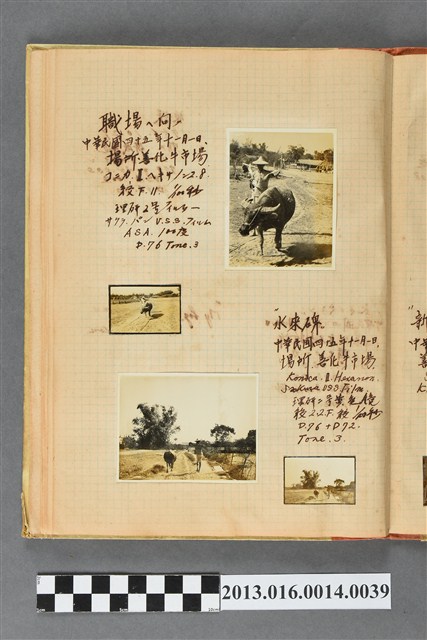 職場へ向ふ
中華民國四十五年十一月一日、
場所 善化牛市場
コニカ Ⅱ ヘキサノン 2.8
絞 F.11 1/100秒
理研 2号フィルター
サクラ パン U.S.S. フィルム
A.S.A. 100度
D.76 Tone.3
"永来碑
中華民國四十五年十一月一日、
場所 善化牛市場
Konica Ⅱ. Hexanon.
Sakura USS Film
絞 1/100秒
D.76 + D72.
Tone. 3.
2013.016.0014.0039